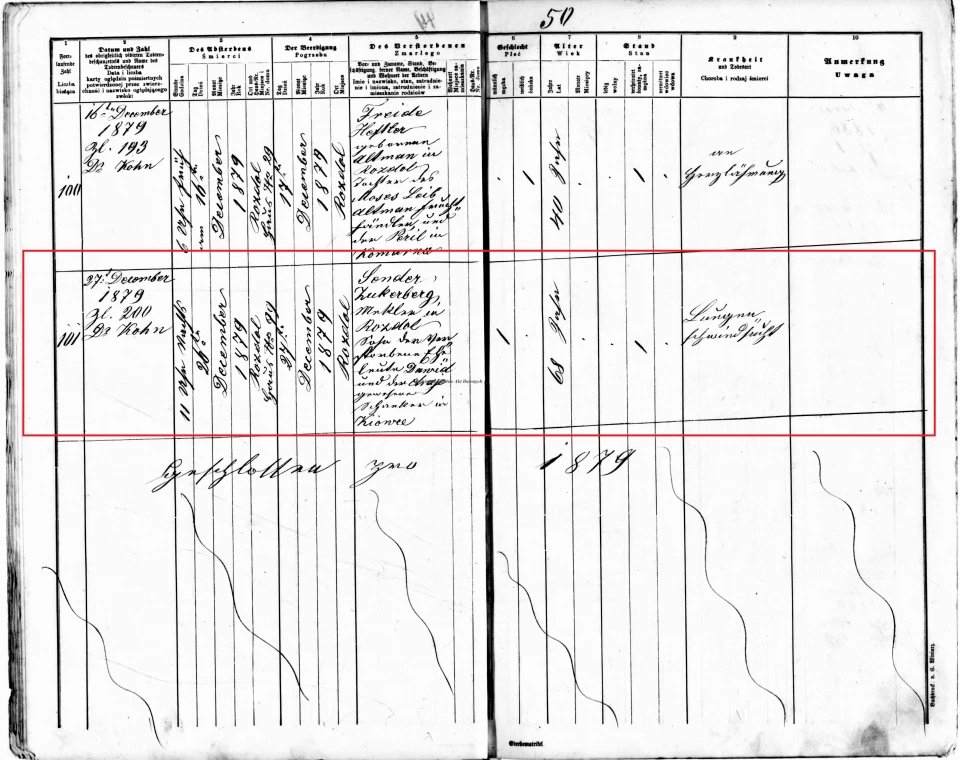 50
1
2
3
4
5
6
7
8
9
10
Fort-
laufende
Zahl
Liczba
bieżąca
Datum und Zahl
des obrigkeitlich vidirten Todten-
beschauzettels und Name des
Todtenbeschauers
Data i liczba
karty oględzin pośmiertnych
potwierdzonej przez zwierz-
chność i nazwisko oglądającego
zwłoki
Des Absterbens
Śmierci
Stunde
Godzina
Tag
Dzień
Monat
Miesiąc
Jahr
Rok
Der Beerdigung
Pogrzebu
Tag
Dzień
Monat
Miesiąc
Jahr
Rok
Ort
Miejsce
Des Verstorbenen
Zmarłego
Vor- und Zuname, Stand, Be-
schäftigung, ferner Name, Beschäftigung
und Wohnort der Aeltern
Imię i nazwisko, stan, zatrudnie-
nie i imiona, zatrudnienie i za-
mieszkanie rodziców
Geschlecht
Płeć
männlich
męzka
weiblich
żeńska
Alter
Wiek
Jahr
Lat
Monate
Miesięcy
Stand
Stan
ledig
wolny
Krankheit
und Todesart
Choroba i rodzaj śmierci
Anmerkung
Uwaga
100
16. December
1879
Zl. 193
Dr Kohn
6 Uhr früh
am 16
December
1879
Rozdol
Haus Nro 29
17
December
1879
Rozdol
Freide
Heftler
gebornen
Altman in
Rozdol
Tochter des
Moses Leib
Altman Frucht
händler und
der Peril in
Komarno
1
40 Jahr
1
an
Herzlähmung
101
27. December
1879
Zl. 200
Dr Kohn
11 Uhr Nachts
26
December
1879
Rozdol
Haus Nro
27
December
1879
Rozdol
Sender
Zukerberg
Mekler in
Rozdol
Sohn der Ver
storbene Ehe
leute Dawid
und der
gewesene
Schanker in
Kiowce
1
68 Jahr
1
Lungen
schwindsucht
Geschlossen pro 1879
Sterbematrikel.